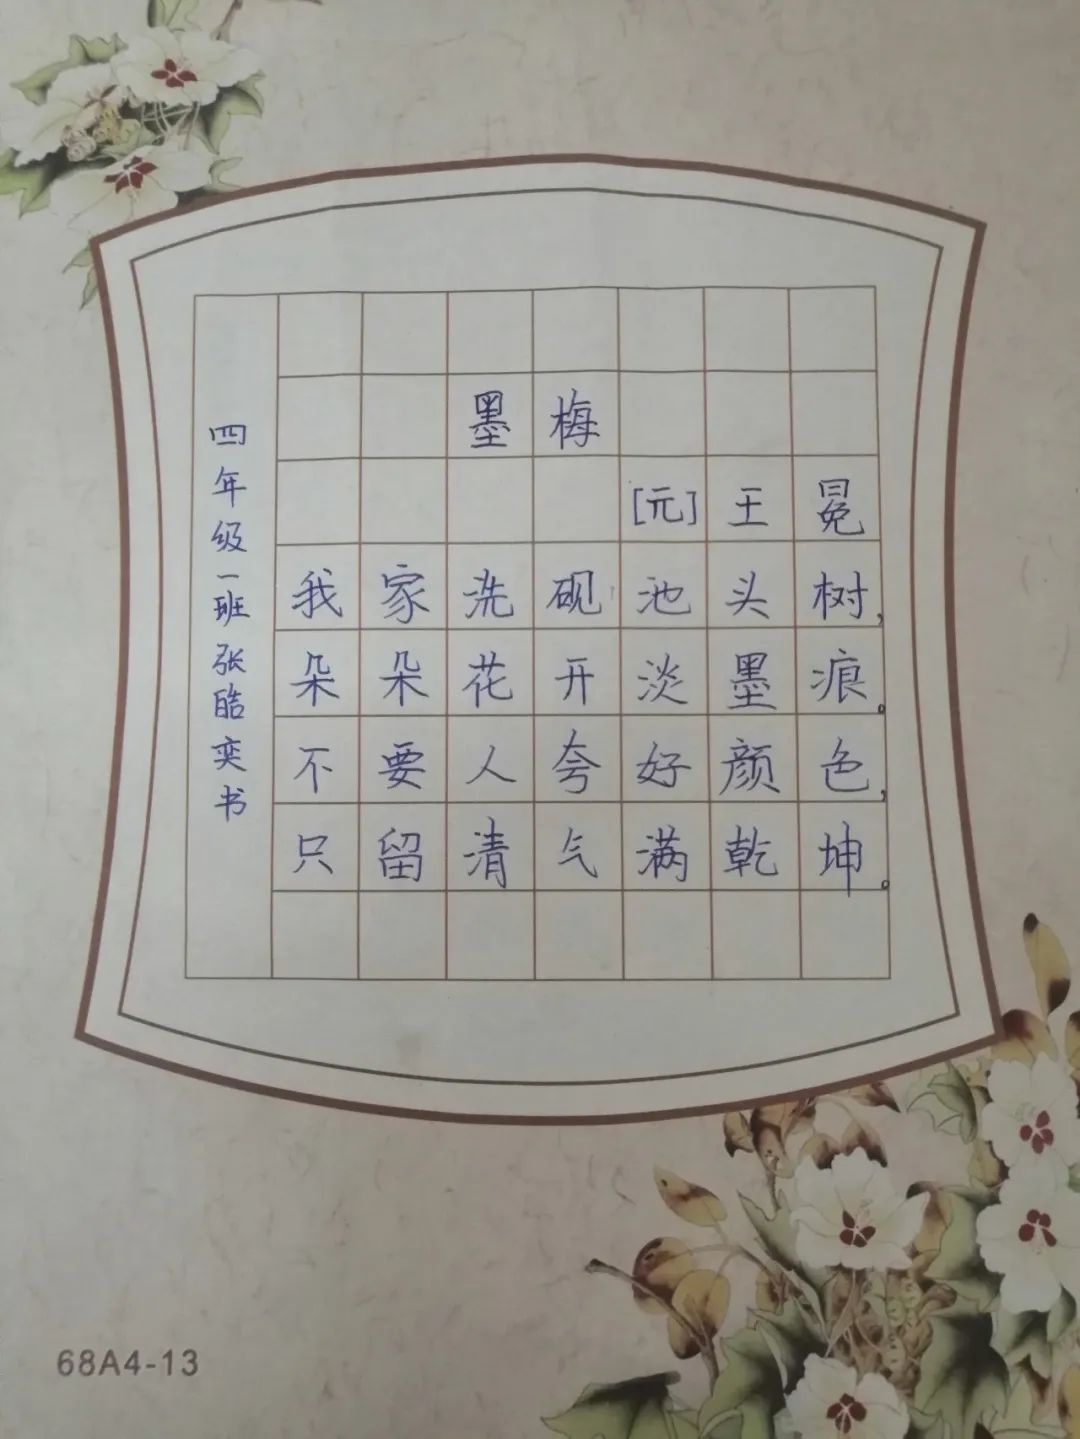 墨梅
[元]王冕
我家洗砚池头树,
朵朵花开淡墨痕。
不要人夸好颜色,
只留清气满乾坤。
四年级一班张皓奕书
68A4-13